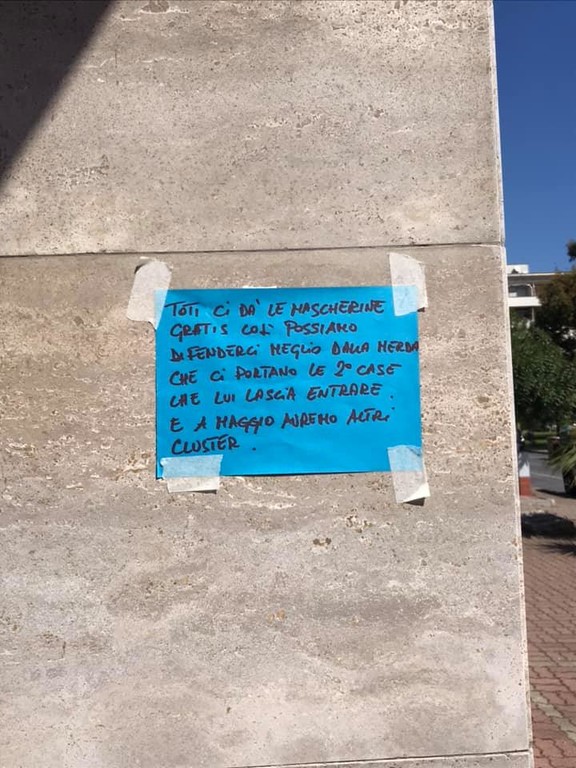 TOTI CI DA' LE MASCHERINE
GRATIS COSÌ POSSIAMO
DIFENDERCI MEGLIO DALLA MERDA
CHE CI PORTANO LE 2° CASE
CHE LUI LASCIA ENTRARE.
E A MAGGIO AVREMO ALTRI
CLUSTER.